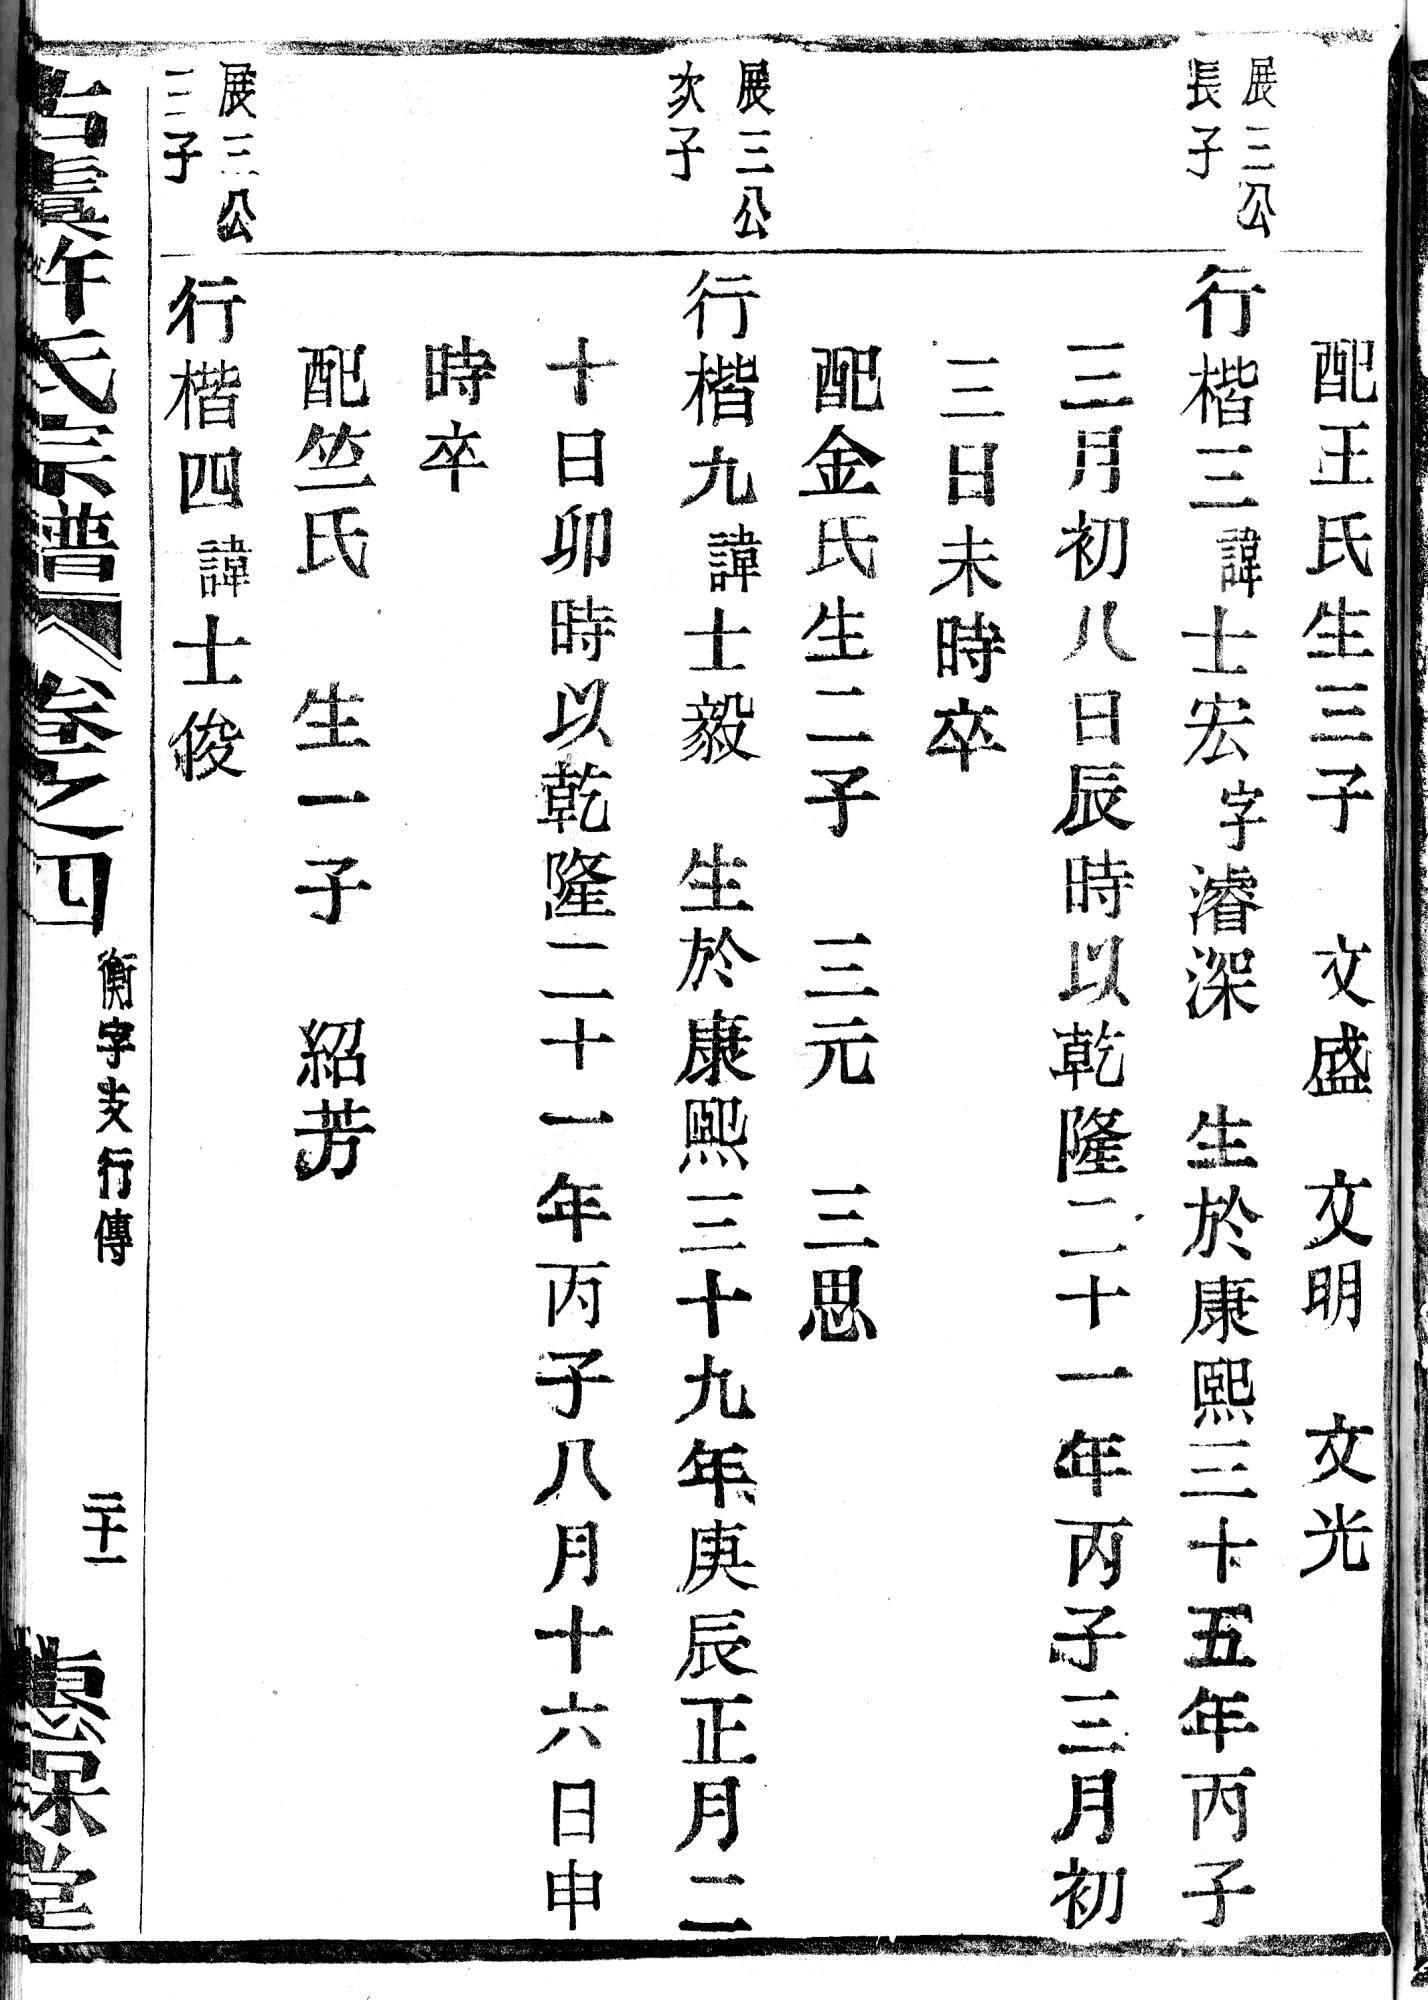 配王氏生三子　文盛　文明　文光
展三公
長子
行楷三諱士宏字濬深　生於康熙三十五年丙子
三月初八日辰時以乾隆二十一年丙子三月初
三日未時卒
配金氏生二子　三元　三思
展三公
次子
行楷九諱士毅　生於康熙三十九年庚辰正月二
十日卯時以乾隆二十一年丙子八月十六日申
時卒
配竺氏　生一子　紹芳
展三公
三子
行楷四諱士俊
古虞許氏宗譜　卷之四　衡字支行傳　二十一　惇深堂